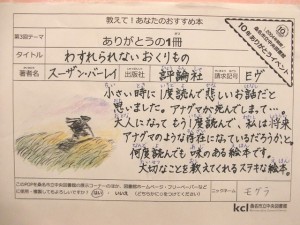 教えて！あなたのおすすめ本
10年ありがとうイベント
第3回テーマ ありがとうの1冊
タイトル わすれられないおくりもの
著者名 スーザン・バーレイ 出版社 評論社 請求記号 Eヴ
小さい時に1度読んで悲しいお話だと
思いました。アナグマが死んでしまって…。
大人になってもう1度読んで、私は将来
アナグマのような存在になっているだろうかと。
何度読んでも味のある絵本です。
大切なことを教えてくれるステキな絵本。
このPOPを桑名市立中央図書館の展示コーナーのほか、図書館ホームページ・フリーペーパーなどに
使用・掲載してもよろしいですか？ はい ・ いいえ (どちらかに○をつけてください)
ニックネーム モグラ
kcl 桑名市立中央図書館